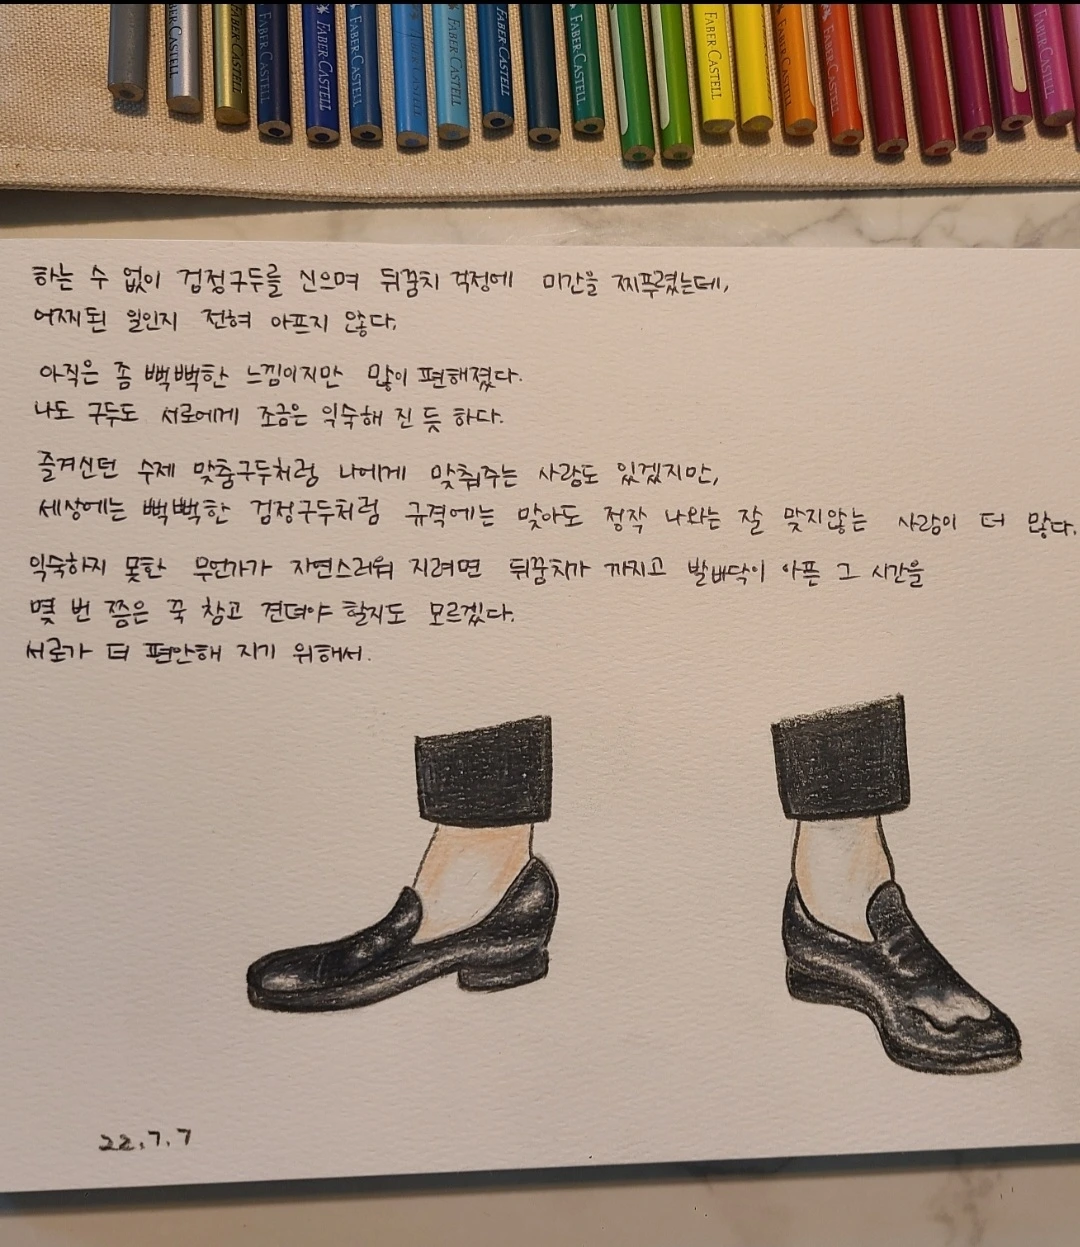 FABER-CASTELL
하는 수 없이 검정구두를 신으며 뒤꿈치 걱정에 미간을 찌푸렸는데,
어찌된 일인지 전혀 아프지 않다.
아직은 좀 뻑뻑한 느낌이지만 많이 편해졌다.
나도 구두도 서로에게 조금은 익숙해 진 듯 하다.
즐겨신던 수제 맞춤구두처럼 나에게 맞춰주는 사람도 있겠지만,
세상에는 뻑뻑한 검정구두처럼 규격에는 맞아도 정작 나와는 잘 맞지않는 사람이 더 많다.
익숙하지 못한 무언가가 자연스러워 지려면 뒤꿈치가 까지고 발바닥이 아픈 그 시간을
몇 번 쯤은 꾹 참고 견뎌야 할지도 모르겠다.
서로가 더 편안해 지기 위해서.
22.7.7